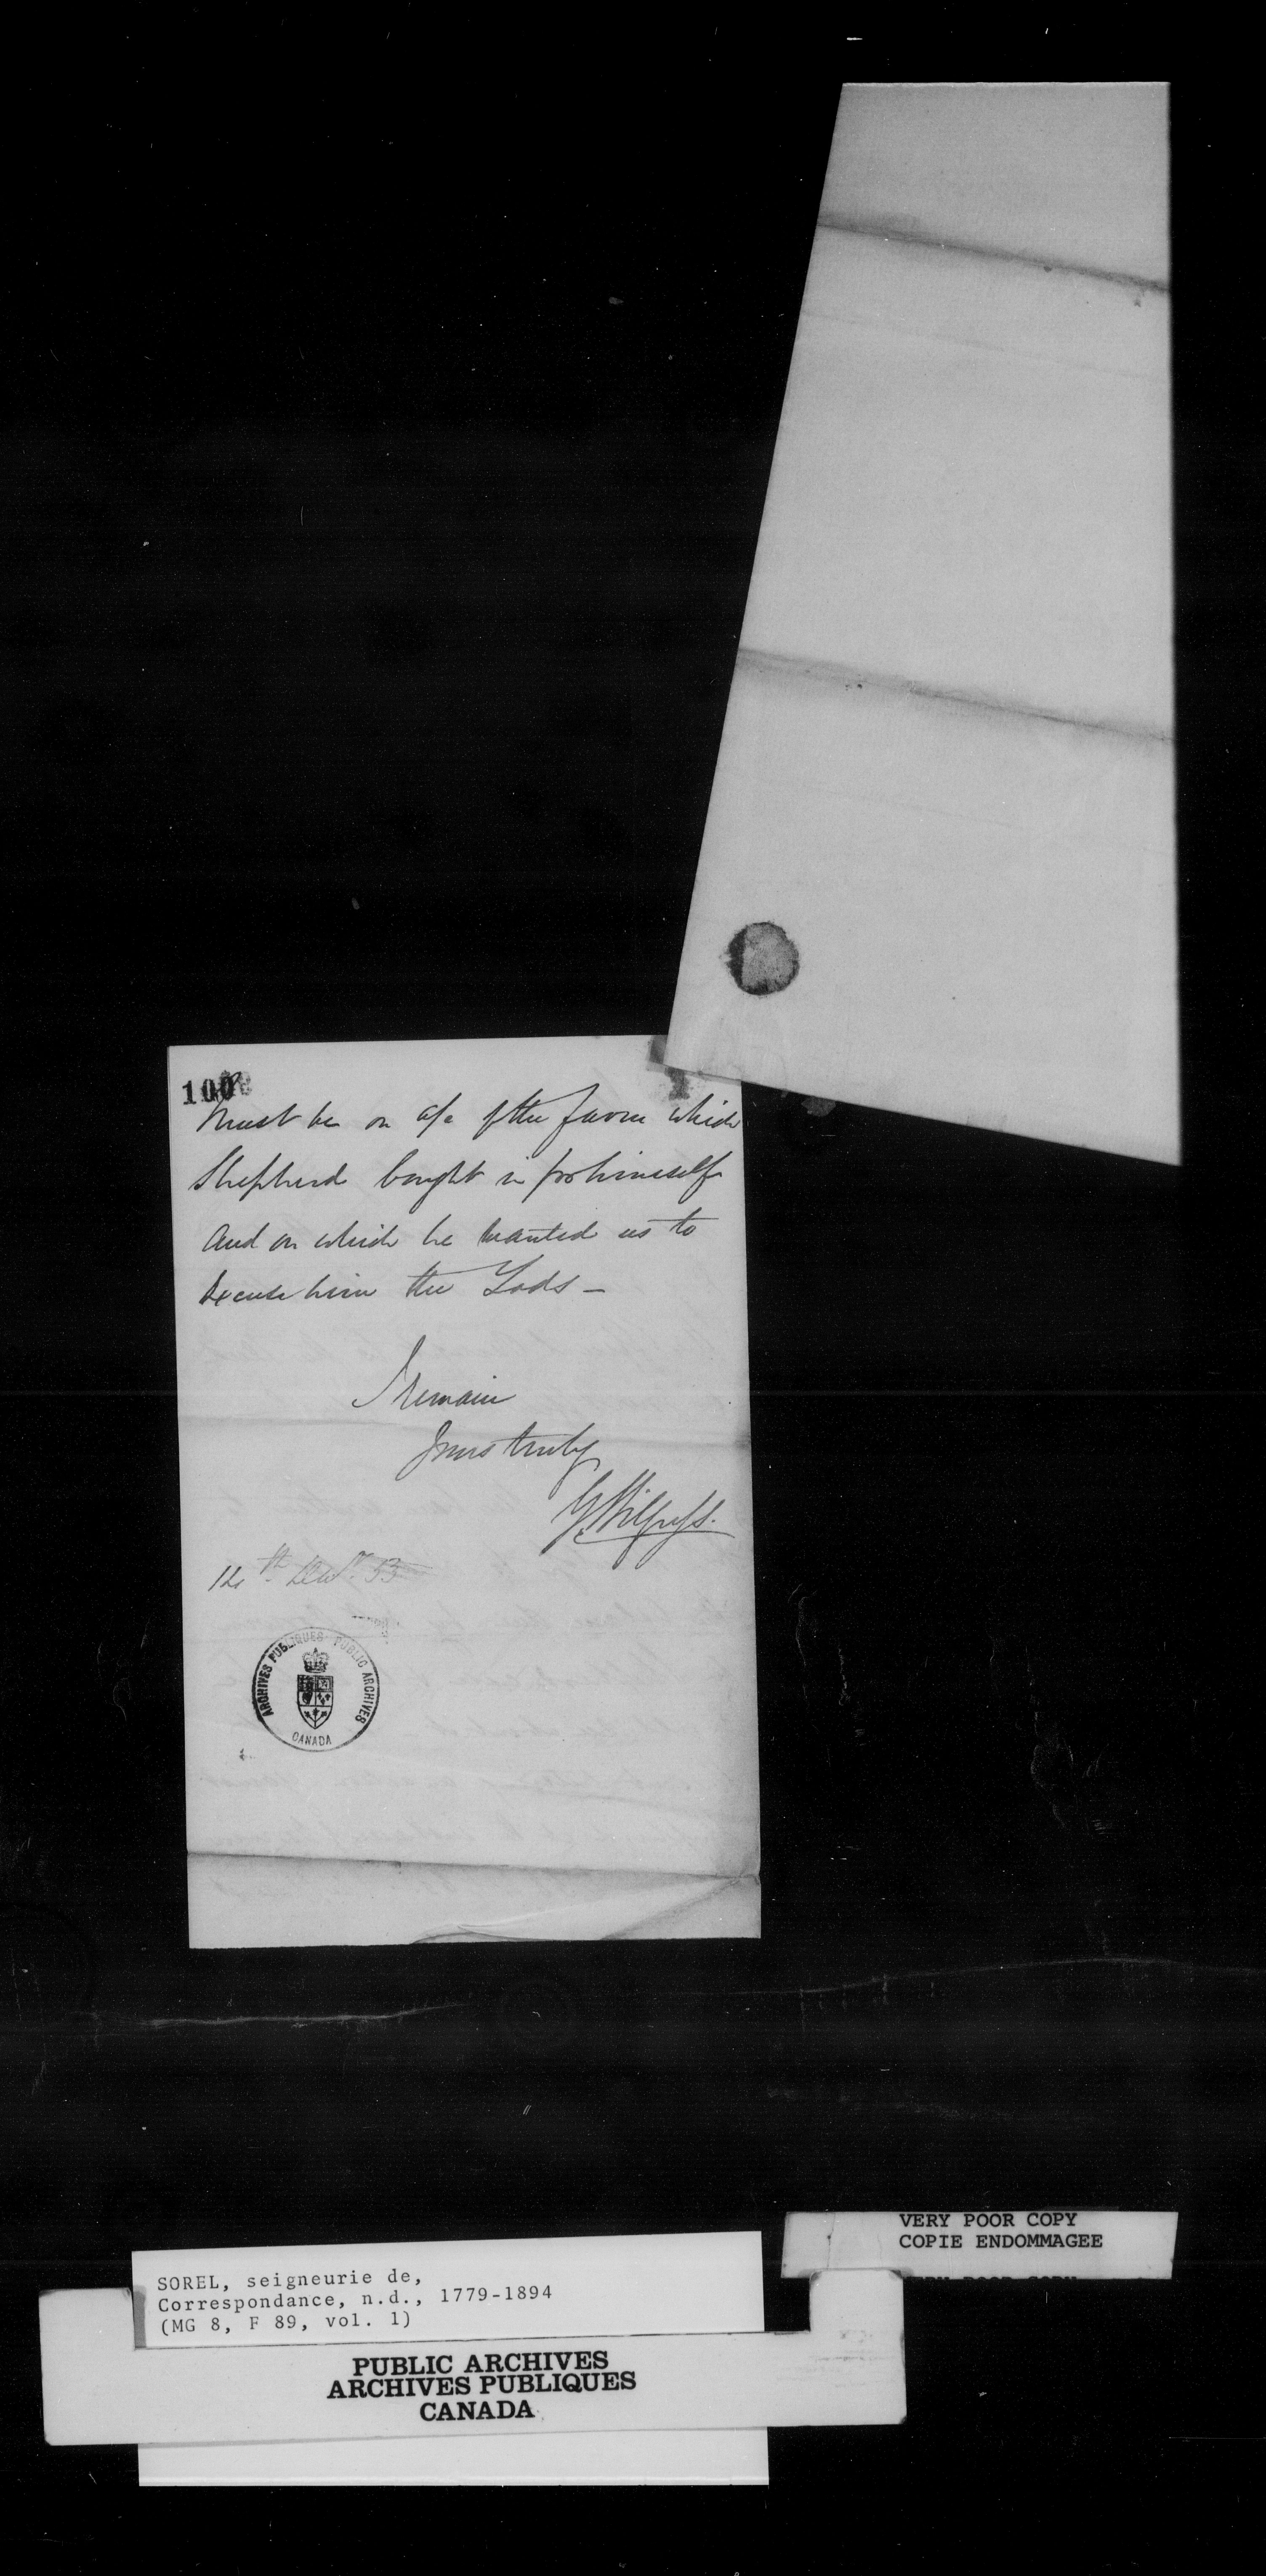 100
Must be on a/c of the farm which
Shepherd bought in for himself
And on which he wanted us to
Excuse him the Lods –
I remain
Yours truly
12th 53
ARCHIVES PUBLIQUES PUBLIC ARCHIVES
CANADA
VERY POOR COPY
COPIE ENDOMMAGEE
SOREL, seigneurie de,
Correspondance, n.d., 1779-1894
(MG 8, F 89, vol. 1)
PUBLIC ARCHIVES
ARCHIVES PUBLIQUES
CANADA